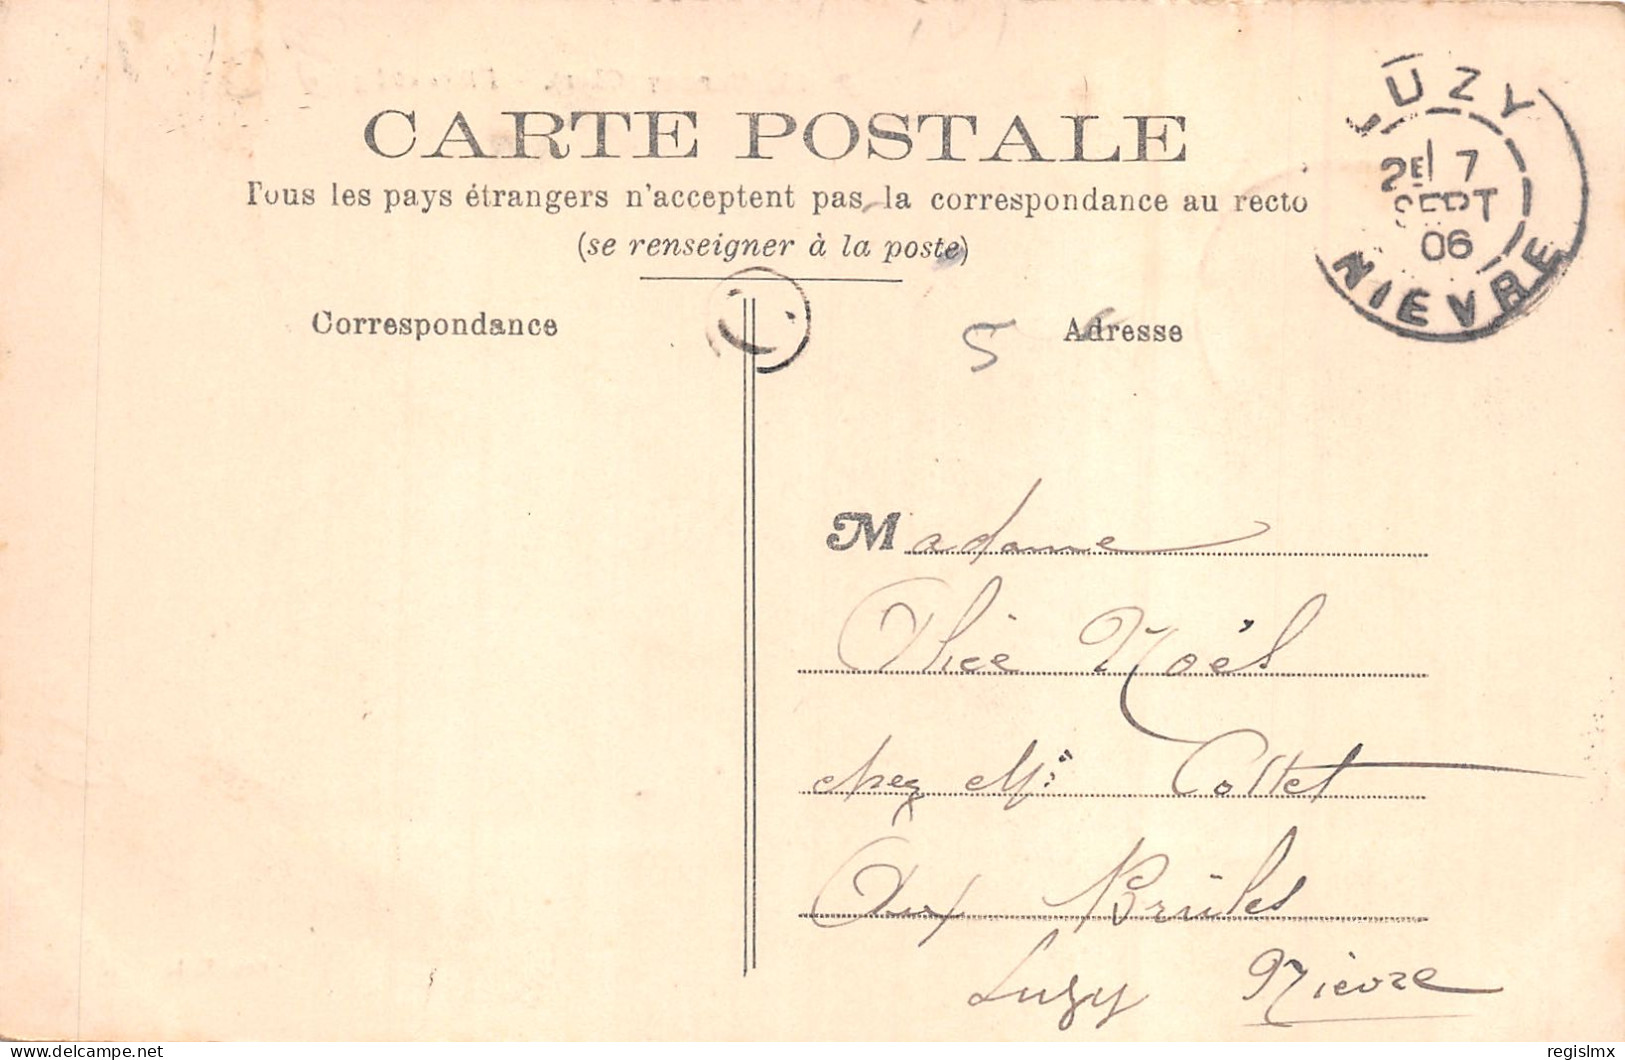 CARTE POSTALE
Tous les pays étrangers n'acceptent pas la correspondance au recto
(se renseigner à la poste)
Correspondance
Adresse
LUZY
2E 7
SEPT
06
NIEVRE
5
Madame
Noël
chez Mr Collet
Aux Brûlés
Luzy Nièvre
delcampe.net
regislmx